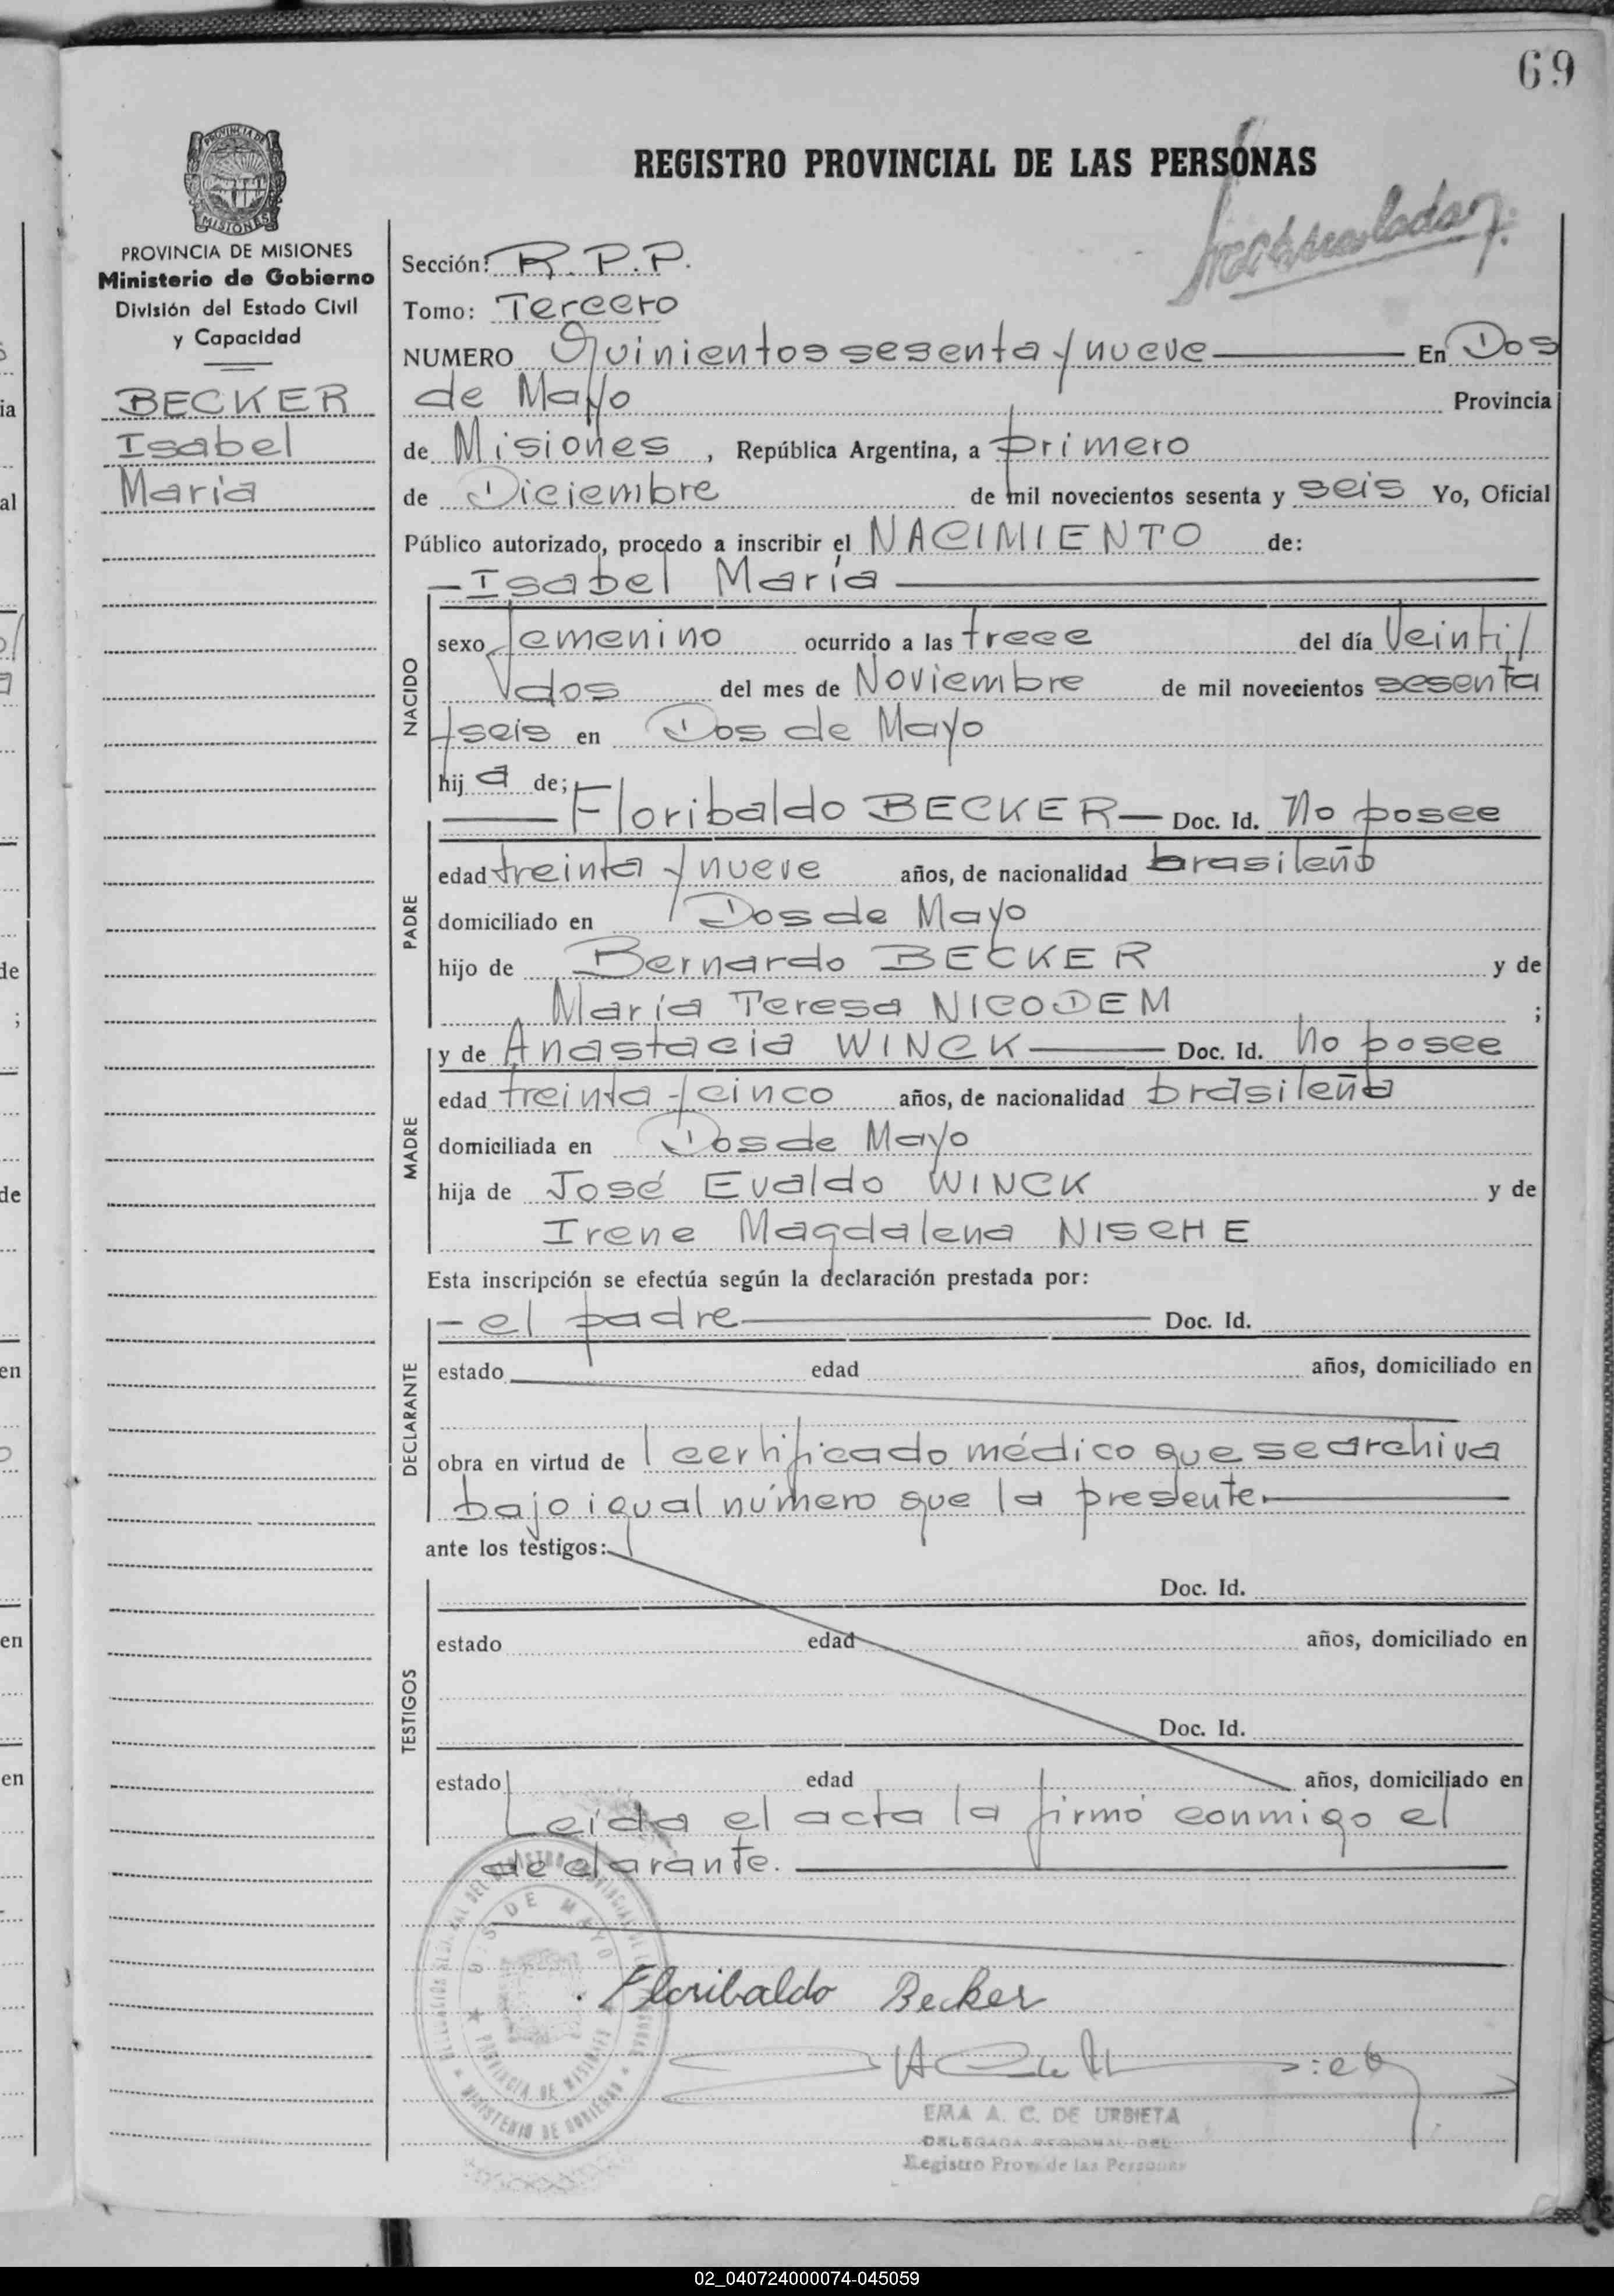 69
PROVINCIA DE MISIONES
Ministerio de Gobierno
División del Estado Civil
y Capacidad
BECKER
Isabel
María
REGISTRO PROVINCIAL DE LAS PERSONAS
Sección: R.P.P.
Tomo: Tercero
NUMERO Quinientos sesenta y nueve En Dos
de Mayo Provincia
de Misiones, República Argentina, a primero
de Diciembre de mil novecientos sesenta y seis Yo, Oficial
Público autorizado, procedo a inscribir el NACIMIENTO de:
- Isabel María
NACIDO
sexo femenino ocurrido a las trece del día Veinti/
dos del mes de Noviembre de mil novecientos sesenta
y seis en Dos de Mayo
hija de;
Floribaldo BECKER — Doc. Id. No posee
PADRE
edad treinta y nueve años, de nacionalidad brasileño
domiciliado en Dos de Mayo
hijo de Bernardo BECKER y de
María Teresa NICODEM ;
y de Anastacia WINCK — Doc. Id. No posee
MADRE
edad treinta y cinco años, de nacionalidad brasileña
domiciliada en Dos de Mayo
hija de José Evaldo WINCK y de
Irene Magdalena NISCHE
Esta inscripción se efectúa según la declaración prestada por:
- el padre — Doc. Id.
DECLARANTE
estado edad años, domiciliado en
obra en virtud de 1 certificado médico que se archiva
bajo igual número que la presente.
ante los testigos:
Doc. Id.
TESTIGOS
estado edad años, domiciliado en
Doc. Id.
estado edad años, domiciliado en
Leída el acta la firmó conmigo el
declarante.
DOS DE MAYO
PROVINCIA DE MISIONES
MINISTERIO DE GOBIERNO
Floribaldo Becker
EMA A. C. DE URBIETA
DELEGADA REGIONAL DEL
Registro Prov. de las Personas
02_040724000074-045059